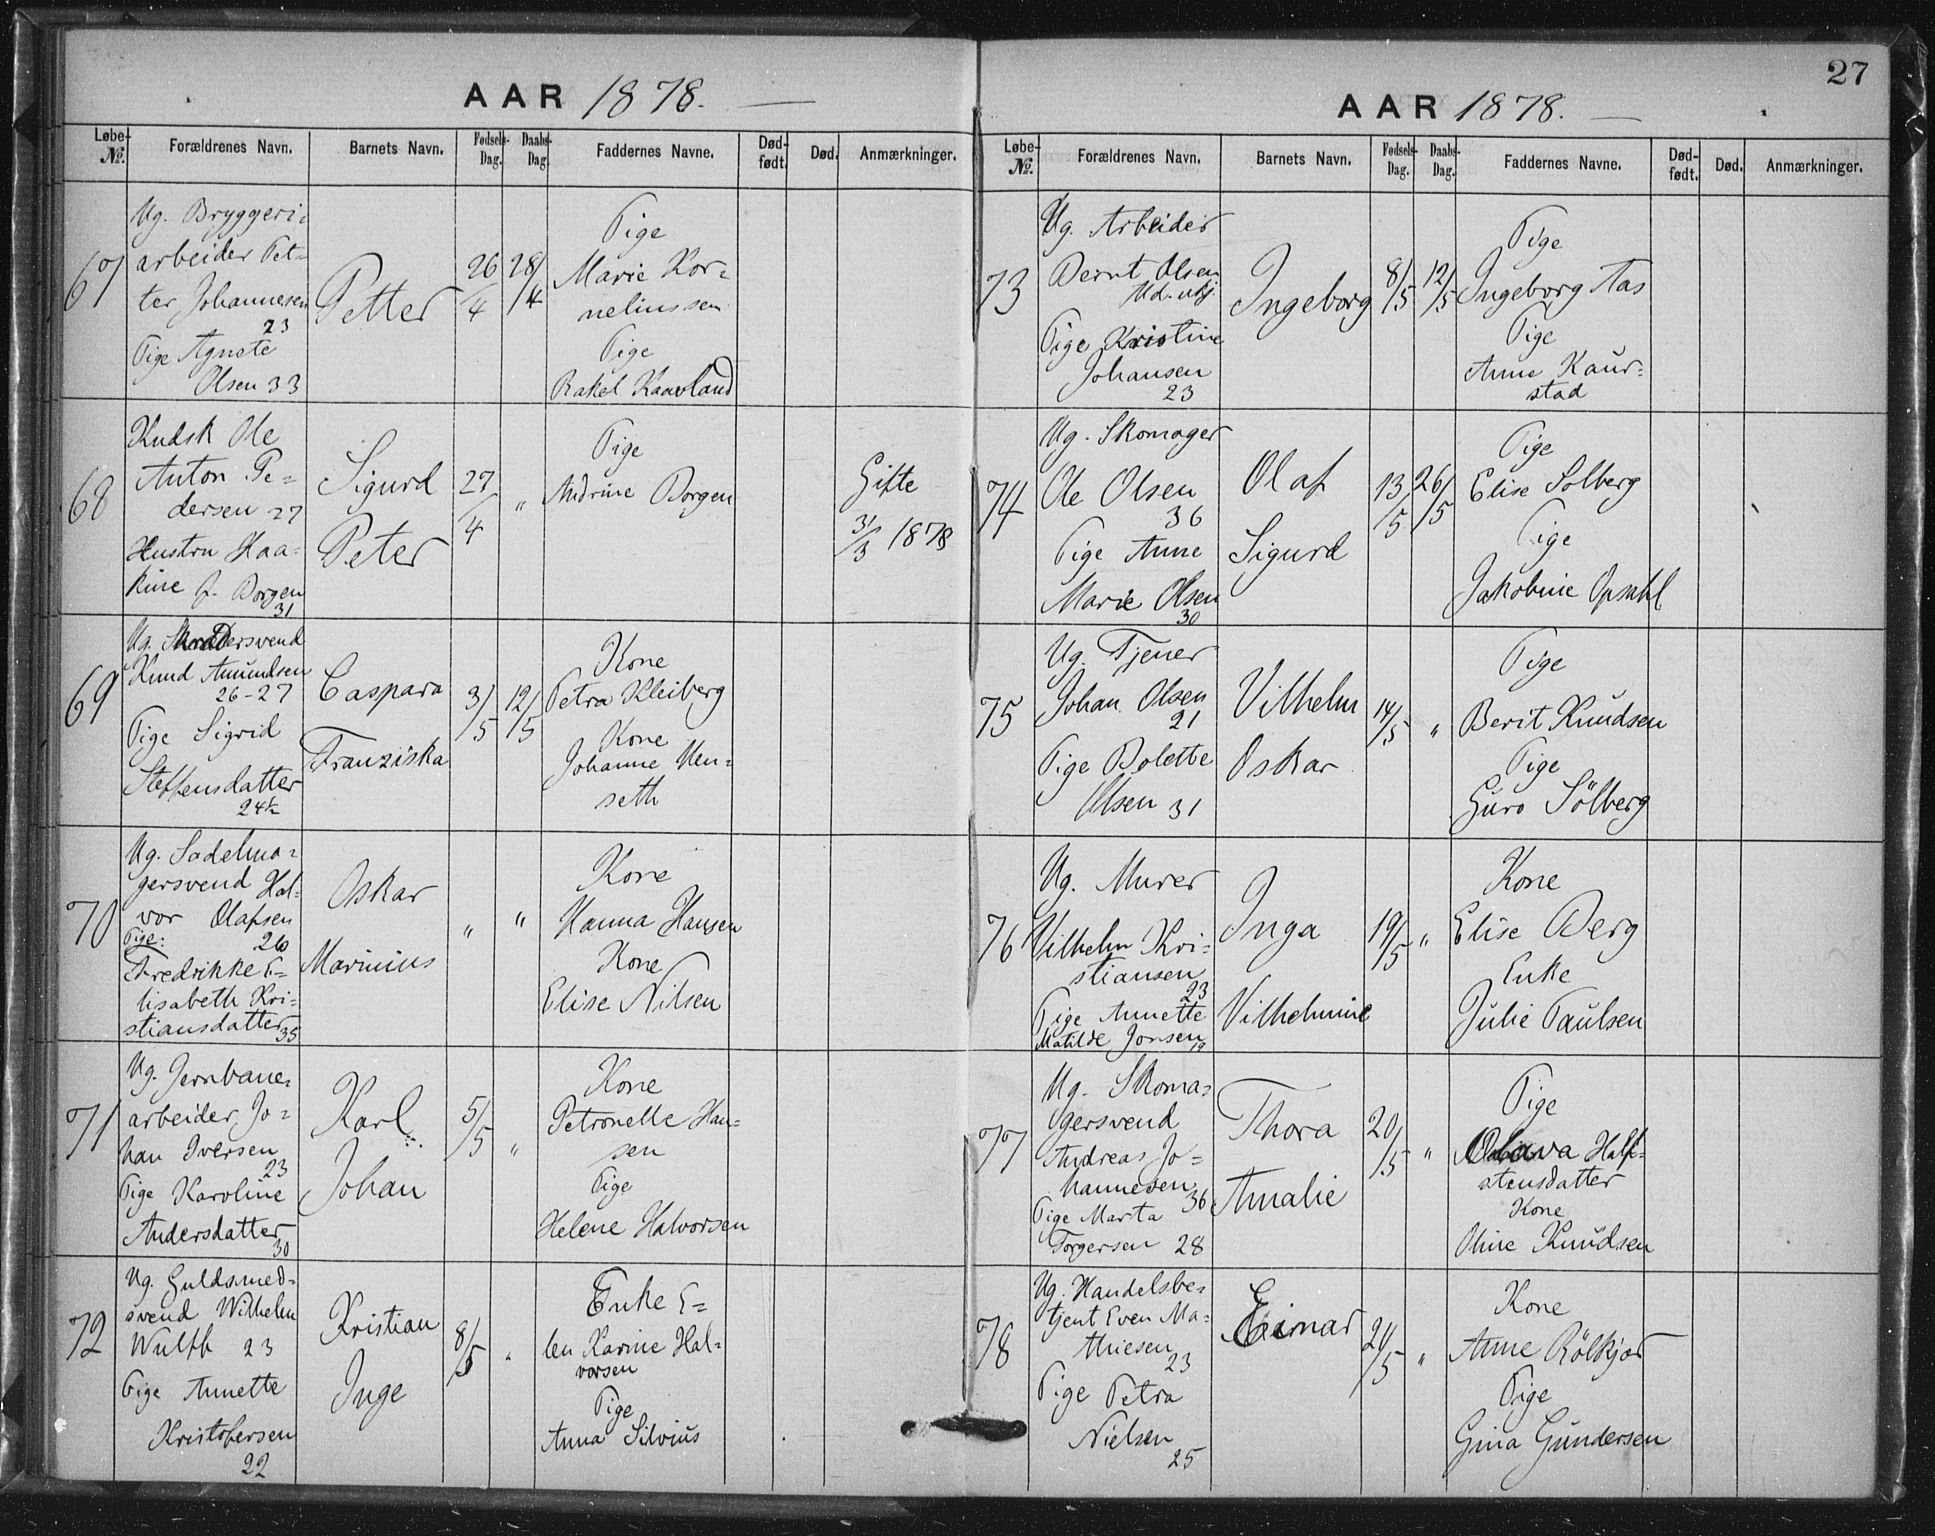 AAR 1878.
Løbe-
№.
Forældrenes Navn.
Barnets Navn.
Fødsels-
Dag.
Daabs-
Dag.
Faddernes Navne.
Død-
født.
Død.
Anmærkninger.
67
Ug. Bryggeri-
arbeider Pet-
ter Johannesen
23
Pige Agnete
Olsen 33
Petter
26/4
28/4
Pige
Marie Kor-
neliussen
Pige
Rakel Kaavland
68
Kudsk Ole
Anton Pe-
dersen 27
Hustru Haa-
kine f. Borgen
31
Sigurd
Peter
27/4
"
Pige
Andrine Borgen
Gifte
31/3 1878
69
Ug. Skrædersvend
Knud Amundsen
26-27
Pige Sigrid
Steffensdatter
24½
Caspara
Franziska
3/5
12/5
Kone
Petra Kleiberg
Kone
Johanne Ven-
seth
70
Ug. Sadelma-
gersvend Hal-
vor Olafsen
Pige: 26
Fredrikke E-
lisabeth Kri-
stiansdatter 35
Oskar
Marinius
"
"
Kone
Hanna Hansen
Kone
Elise Nilsen
71
Ug. Jernbane-
arbeider, Jo-
han Iversen
23
Pige Karoline
Andersdatter
30
Karl
Johan
5/5
"
Kone
Petronelle Han-
sen
Pige
Helene Halvorsen
72
Ug. Guldsmed-
svend Wilhelm
Wulff 23
Pige Annette
Kristofersen
22
Kristian
Inge
8/5
"
Enke E-
len Karine Hal-
vorsen
Pige
Anna Silvius
27
AAR 1878.
Løbe-
№.
Forældrenes Navn.
Barnets Navn.
Fødsels-
Dag.
Daabs-
Dag.
Faddernes Navne.
Død-
født.
Død.
Anmærkninger.
73
Ug. Arbeider
Bernt Olsen
Pige Kristine
Johansen
23
Ingeborg
8/5
12/5
Pige
Ingeborg Aas
Pige
Anne Kaur-
stad
74
Ug. Skomager
Ole Olsen
36
Pige Anne
Marie Olsen
30
Olaf
Sigurd
13/5
26/5
Pige
Elise Solberg
Pige
Jakobine Opsahl
75
Ug. Tjener
Johan Olsen
21
Pige Bolette
Olsen 31
Vilhelm
Oskar
14/5
"
Pige
Berit Knudsen
Pige
Guro Sølberg
76
Ug. Murer
Vilhelm Kri-
stiansen
23
Pige Annette
Matilde Jonsen 19
Inga
Vilhelmine
19/5
"
Kone
Elise Berg
Enke
Julie Paulsen
77
Ug. Skoma-
gersvend
Andreas Jo-
hannesen
36
Pige Marta
Torgersen 28
Thora
Amalie
20/5
"
Pige
Olava Half-
stensdatter
Kone
Oline Knudsen
78
Ug. Handelsbe-
tjent Even Ma-
thiesen
23
Pige Petra
Nielsen
25
Einar
21/5
"
Kone
Anne Rölkjær
Pige
Gina Gundersen